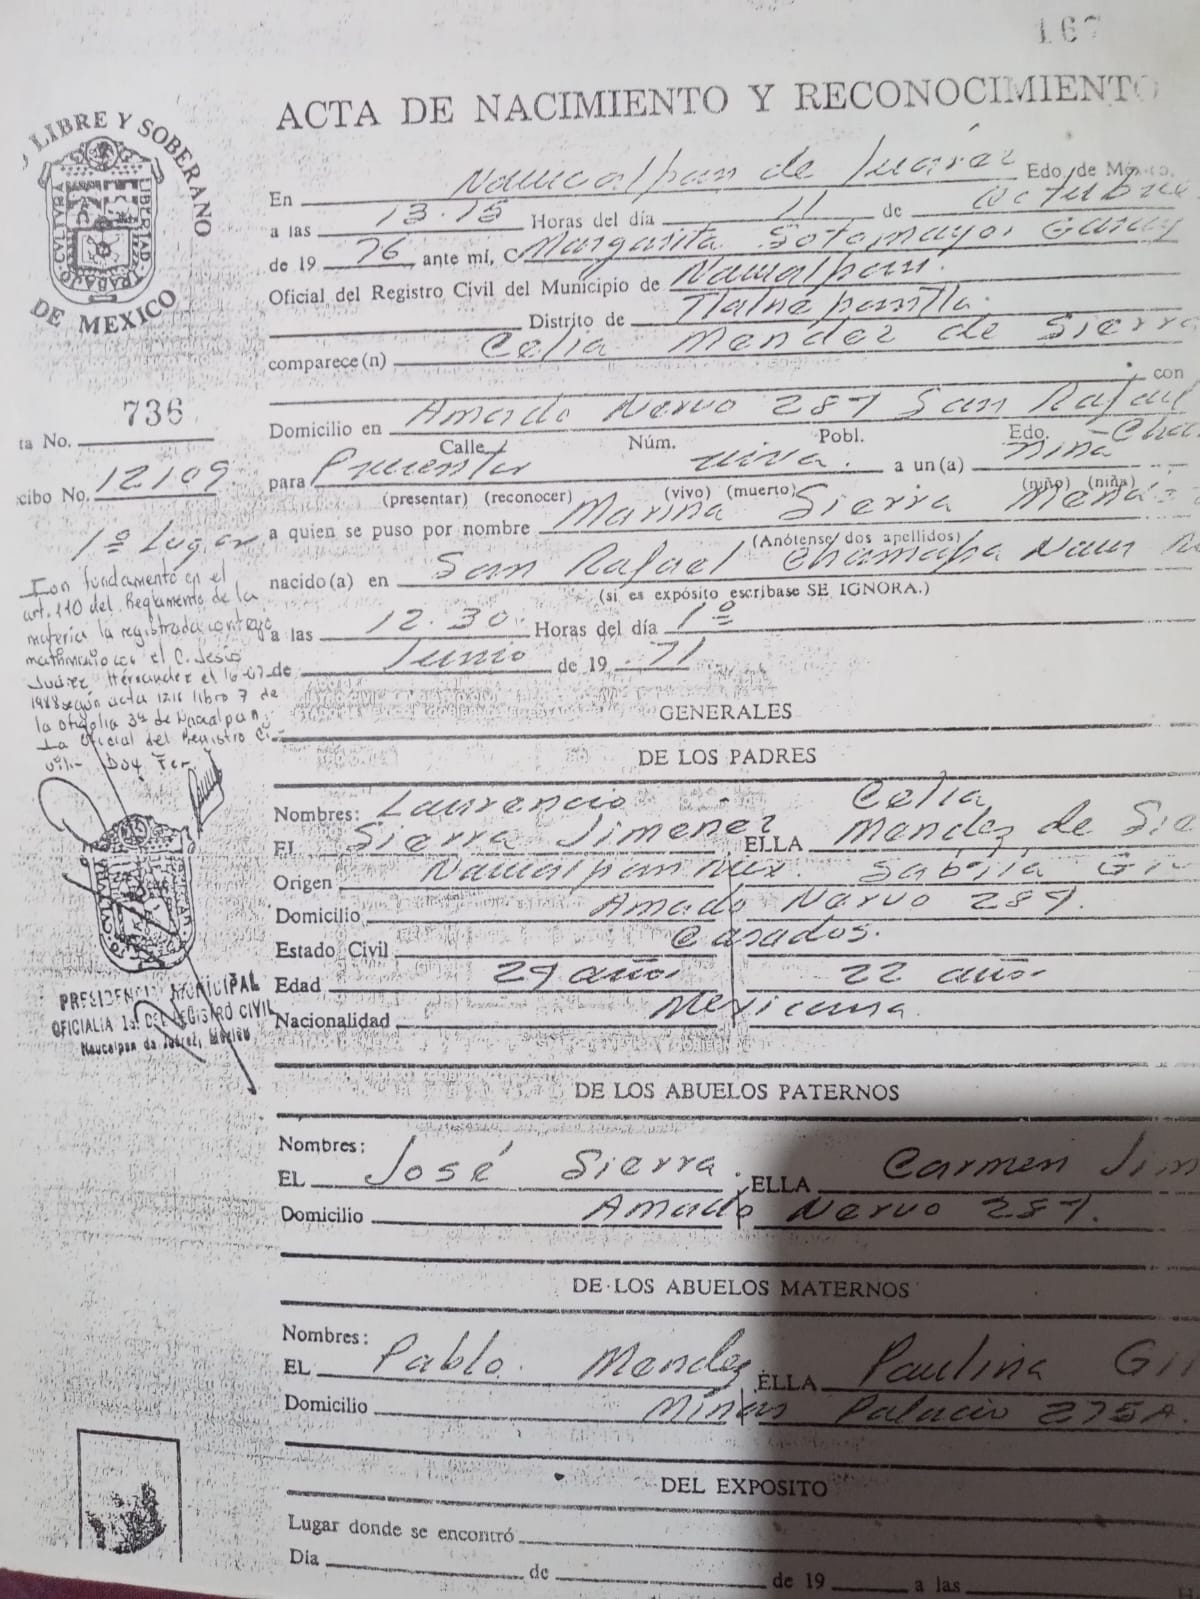 167
ACTA DE NACIMIENTO Y RECONOCIMIENTO
LIBRE Y SOBERANO
DE MEXICO
CULTURA TRABAJO LIBERTAD
En Naucalpan de Juárez Edo. de México.
a las 13.15 Horas del día 11 de Octubre
de 19 76 ante mí, C. Margarita Sotomayor
Oficial del Registro Civil del Municipio de Naucalpan.
Distrito de Tlalnepantla.
comparece(n) Celia Mendez de Sierra
con
Domicilio en Amado Nervo 287 San Rafael
Calle Núm. Pobl. Edo.
ta No. 736
para Presentar viva. a un(a) niña
(presentar) (reconocer) (vivo) (muerto) (niño) (niña)
cibo No. 12109
a quien se puso por nombre Marina Sierra Mende
(Anótense dos apellidos)
1º Lugar
nacido(a) en San Rafael Chamapa Nau
(si es expósito escríbase SE IGNORA.)
a las 12.30 Horas del día 1º
de Junio de 19 71
Con fundamento en el
art. 110 del Reglamento de la
materia la registrada contrajo
matrimonio con el C. Jesús
Juárez Hernandez el 16-07-
1988 según acta 1216 libro 7 de
la oficialía 3ª de Naucalpan
La Oficial del Registro Ci-
vil.- Doy Fe
PRESIDENCIA MUNICIPAL
OFICIALIA 1a. DEL REGISTRO CIVIL
Naucalpan de Juárez, México
GENERALES
DE LOS PADRES
Nombres: Laurencio Celia
El Sierra Jimenez ELLA Mendez de Sie
Origen Naucalpan Mex.
Domicilio Amado Nervo 287.
Estado Civil Casados.
Edad 27 años 22 años
Nacionalidad Mexicana.
DE LOS ABUELOS PATERNOS
Nombres:
EL José Sierra. ELLA Carmen Jim
Domicilio Amado Nervo 287.
DE LOS ABUELOS MATERNOS
Nombres:
EL Pablo Mendez ELLA Paulina Gil
Domicilio Minas Palacio 275A.
DEL EXPOSITO
Lugar donde se encontró
Día de de 19 a las